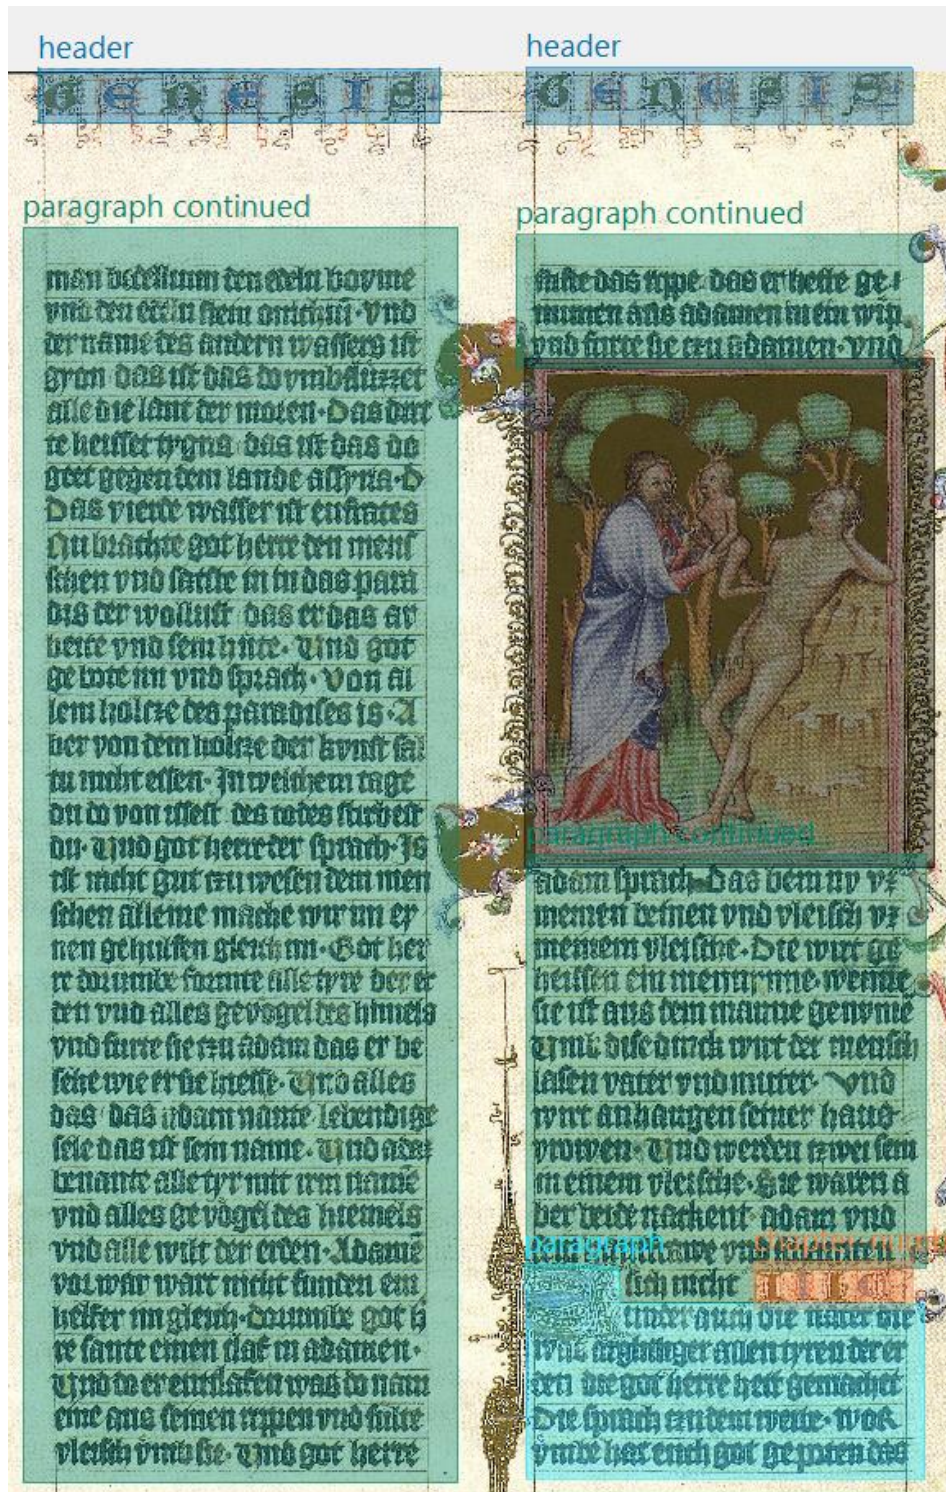 header
GENESIS
header
GENESIS
paragraph continued
man den edeln
vnd den edeln stein vnd
der name des andern wassers ist
gyon das ist das do vmbfluzzet
alle die lant der moren. Das drit
te heisset tygris das ist das do
geet gegen dem lande assyria. D
Das vierde wasser ist eufrates
Nu brachte got herre den mens
schen vnd saczte in in das para
dis der wollust das er das ar
beite vnd sein hute. Vnd got
gebote im vnd sprach. Von al
lem holcze des paradises is. A
ber von dem holcze der kunst sal
tu nicht essen. In welichem tage
du do von issest des todes stirbest
du. Vnd got herre der sprach. Is
ist nicht gut czu wesen dem men
schen alleine mache wir im ey
nen gehulffen gleich im. Got her
re dorumb formte alle tyre der er
den vnd alles gevogel des himels
vnd furte sie czu adam das er be
sehe wie er sie hiesse. Vnd alles
das das adam nante lebendige
sele das ist sein name. Vnd adam
benante alle tyr mit irem name
vnd alles gevogel des hiemels
vnd alle wilt der erden. Adame
vorwar wart nicht funden ein
helfer im gleich. dorumb got h
re sante einen slaf in adamen.
Vnd do er entslafen was do nam
eine aus seinen rippen vnd fulte
vleisch vmb sie. Vnd got herre
paragraph continued
das rippe das er hette ge
numen aus adamen in ein wip
vnd furte sie czu adamen. vnd
paragraph continued
adam sprach. Das bein nv vz
meinen beinen vnd vleisch vz
meinem vleische. Die wirt ge
heissen ein mennynne. wenne
sie ist aus dem manne genvme
Vmb dise dinck wirt der mensch
lasen vater vnd muter. Vnd
wirt anhangen seiner haus
vrowen. Vnd werden czwei sein
in einem vleische. Sie waren a
ber beide nackent adam vnd
paragraph
sich nicht
chapter-num
III C
auch die nater die
was aller tyren der er
den die got herre hett gemachet
Die sprach czu dem weibe. wor
vmbe hat euch got geboten das